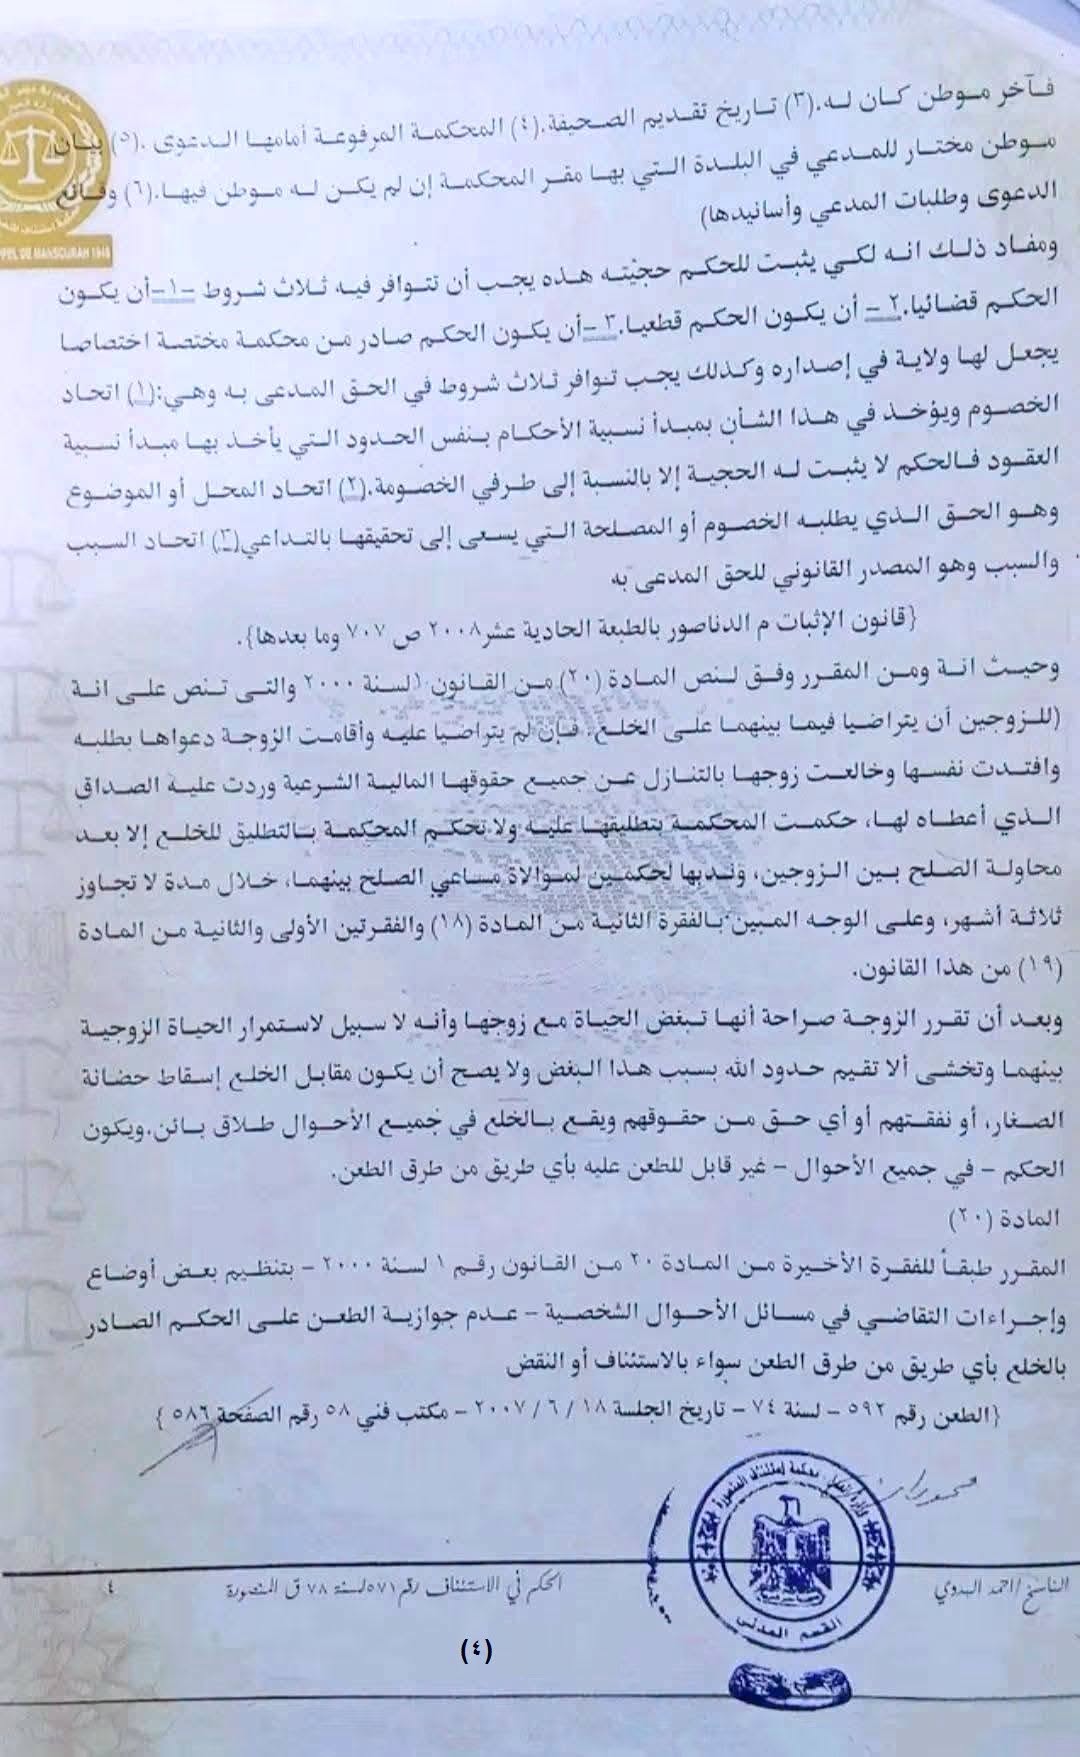 فـآخر مـوطن كـان لـه.(٣) تـاريخ تقـديم الصـحيفة.(٤) المحكمـة المرفوعـة أمامهـا الـدعوى .(٥) بيـان
مـوطن مختـار للمـدعي في البلـدة الـتي بهـا مقـر المحكمـة إن لم يكـن لـه مـوطن فيهـا.(٦) وقـائع
الدعوى وطلبات المدعي وأسانيدها)
ومفاد ذلك انه لكي يثبت للحكم حجيته هذه يجب أن تتوافر فيه ثلاث شروط -١-أن يكون
الحكم قضائيا.٢- أن يكون الحكم قطعيا.٣-أن يكون الحكم صادر من محكمة مختصة اختصاصا
يجعل لها ولاية في إصداره وكذلك يجب توافر ثلاث شروط في الحق المدعى به وهي:(١) اتحاد
الخصوم ويؤخذ في هذا الشأن بمبدأ نسبية الأحكام بنفس الحدود التي يأخذ بها مبدأ نسبية
العقود فالحكم لا يثبت له الحجية إلا بالنسبة إلى طرفي الخصومة.(٢) اتحاد المحل أو الموضوع
وهو الحق الذي يطلبه الخصوم أو المصلحة التي يسعى إلى تحقيقها بالتداعي(٣) اتحاد السبب
والسبب وهو المصدر القانوني للحق المدعى به
{قانون الإثبات م الدناصور بالطبعة الحادية عشر٢٠٠٨ ص ٧٠٧ وما بعدها}.
وحيث انة ومن المقرر وفق لنص المادة (٢٠) من القانون ١لسنة ٢٠٠٠ والتى تنص على انة
(للزوجين أن يتراضيا فيما بينهما على الخلع، فإن لم يتراضيا عليه وأقامت الزوجة دعواها بطلبه
وافتدت نفسها وخالعت زوجها بالتنازل عن جميع حقوقها المالية الشرعية وردت عليه الصداق
الذي أعطاه لها، حكمت المحكمة بتطليقها عليه ولا تحكم المحكمة بالتطليق للخلع إلا بعد
محاولة الصلح بين الزوجين، وندبها لحكمين لموالاة مساعي الصلح بينهما، خلال مدة لا تجاوز
ثلاثة أشهر، وعلى الوجه المبين بالفقرة الثانية من المادة (١٨) والفقرتين الأولى والثانية من المادة
(١٩) من هذا القانون.
وبعد أن تقرر الزوجة صراحة أنها تبغض الحياة مع زوجها وأنه لا سبيل لاستمرار الحياة الزوجية
بينهما وتخشى ألا تقيم حدود الله بسبب هذا البغض ولا يصح أن يكون مقابل الخلع إسقاط حضانة
الصغار، أو نفقتهم أو أي حق من حقوقهم ويقع بالخلع في جميع الأحوال طلاق بائن.ويكون
الحكم - في جميع الأحوال - غير قابل للطعن عليه بأي طريق من طرق الطعن.
المادة (٢٠)
المقرر طبقاً للفقرة الأخيرة من المادة ٢٠ من القانون رقم ١ لسنة ٢٠٠٠ - بتنظيم بعض أوضاع
وإجراءات التقاضي في مسائل الأحوال الشخصية - عدم جوازية الطعن على الحكم الصادر
بالخلع بأي طريق من طرق الطعن سواء بالاستئناف أو النقض
{الطعن رقم ٥٩٢ - لسنة ٧٤ - تاريخ الجلسة ١٨ / ٦ / ٢٠٠٧ - مكتب فني ٥٨ رقم الصفحة ٥٨٦ }
محكمة استئناف المنصورة
القسم المدنى
الناسخ/ احمد البدوي
الحكم في الاستئناف رقم ٥٧١ لسنة ٧٨ ق المنصورة
٤
(٤)
PPEL DE MANSOURAH 1948